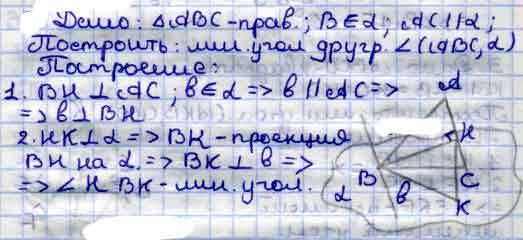 Дано: △ABC-прав.; B∈α; AC||α;
Построить: лин. угол двугр. ∠(ABC,α)
Построение:
1. BH⊥AC; в∈α => в||AC =>
=> в⊥BH
2. HK⊥α => BK-проекция
BH на α. => BK⊥в =>
=> ∠HBK-лин. угол.
A
H
B
в
C
α
K